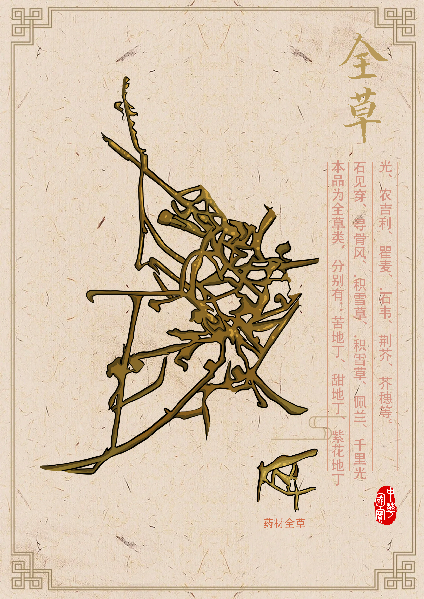 全草
本品为全草类，分别有：苦地丁、甜地丁、紫花地丁
石见穿、寻骨风、积雪草、积雪草、佩兰、千里光
光、农吉利、瞿麦、石韦、荆芥、芥穗等
药材全草